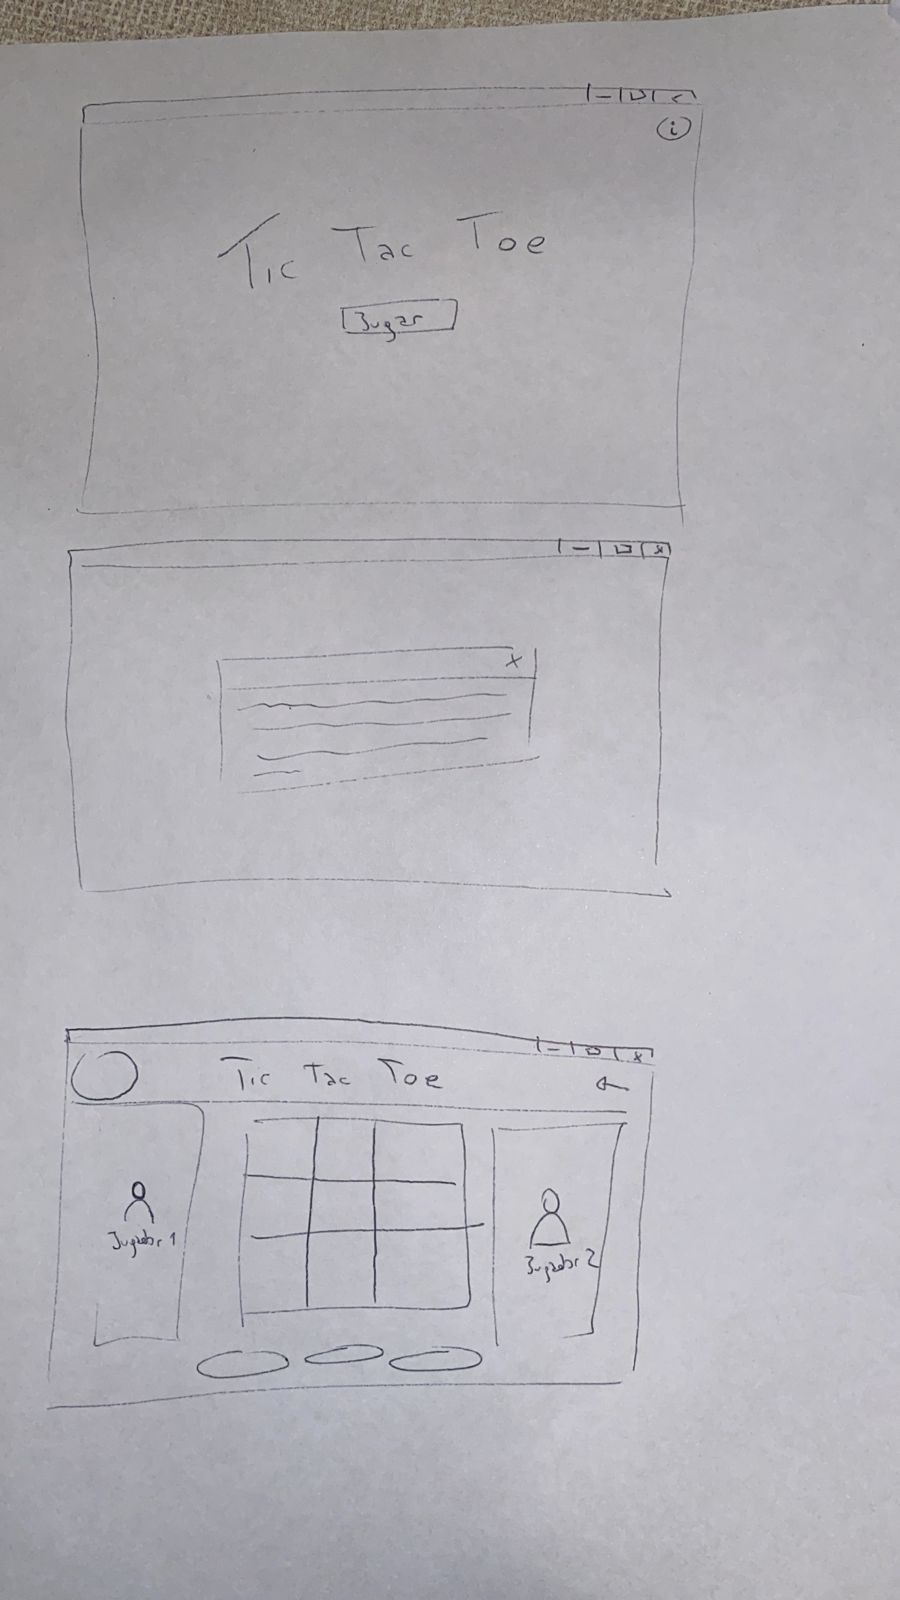 i
Tic Tac Toe
Jugar
x
x
Tic Tac Toe
x
Jugador 1
Jugador 2